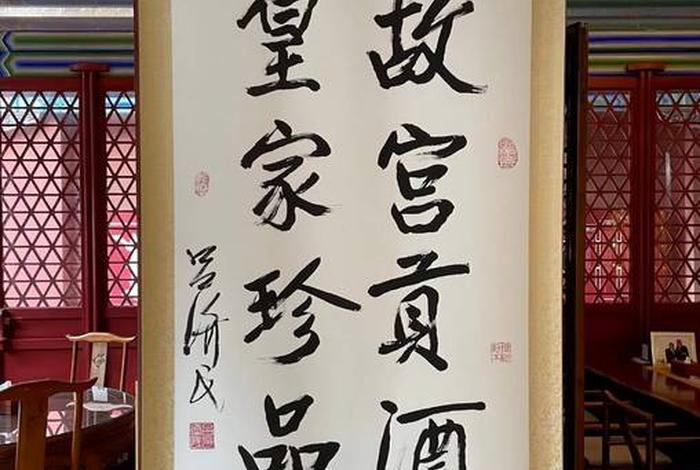 故宫貢酒
皇家珍品
吕济民